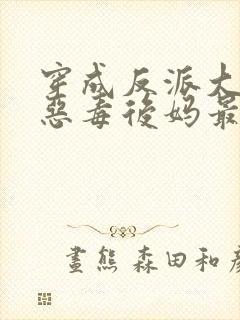 穿成反派大
惡毒後妈最
畫熊 森田和